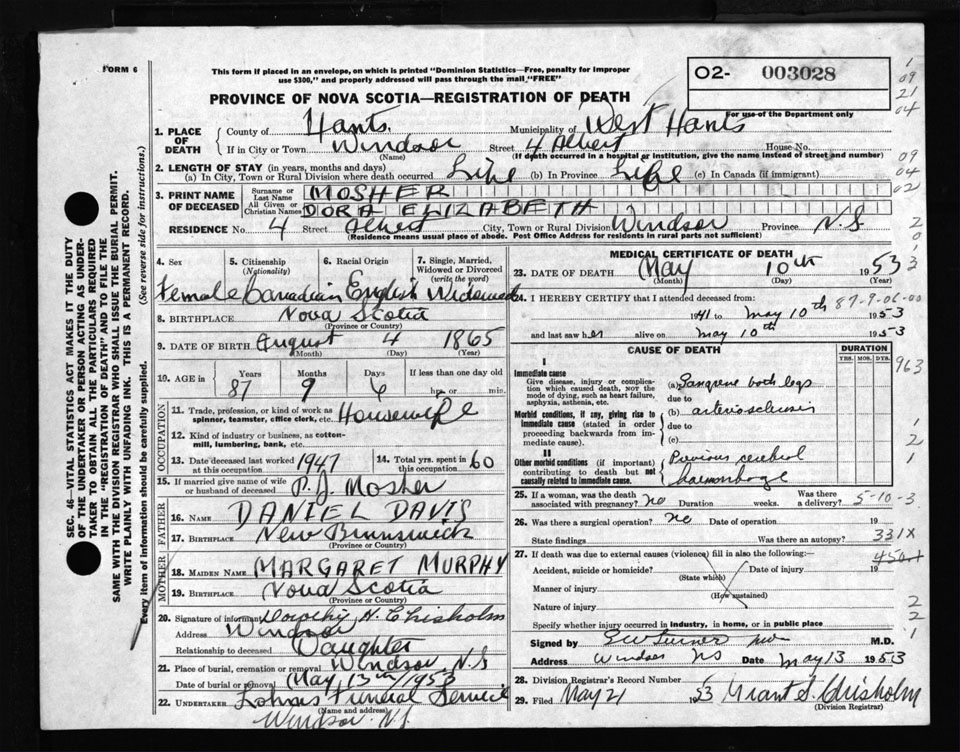 FORM 6
This form if placed in an envelope, on which is printed "Dominion Statistics—Free, penalty for improper
use $300," and properly addressed will pass through the mail "FREE"
O2- 003028
For use of the Department only
1
09
21
04
09
04
02
2
0
3
2
PROVINCE OF NOVA SCOTIA—REGISTRATION OF DEATH
1. PLACE OF DEATH
County of Hants. Municipality of West Hants
If in City or Town Windsor Street 4 Albert House No.
(Name) (If death occurred in a hospital or institution, give the name instead of street and number)
2. LENGTH OF STAY (in years, months and days)
(a) In City, Town or Rural Division where death occurred Life (b) In Province Life (c) In Canada (if immigrant)
3. PRINT NAME OF DECEASED
Surname or Last Name MOSHER
All Given or Christian Names DORA ELIZABETH
RESIDENCE No. 4 Street Albert City, Town or Rural Division Windsor Province N.S
(Residence means usual place of abode. Post Office Address for residents in rural parts not sufficient)
SEC. 46—VITAL STATISTICS ACT MAKES IT THE DUTY
OF THE UNDERTAKER OR PERSON ACTING AS UNDER-
TAKER TO OBTAIN ALL THE PARTICULARS REQUIRED
IN THE "REGISTRATION OF DEATH" AND TO FILE THE
SAME WITH THE DIVISION REGISTRAR WHO SHALL ISSUE THE BURIAL PERMIT.
WRITE PLAINLY WITH UNFADING INK. THIS IS A PERMANENT RECORD.
Every item of information should be carefully supplied. (See reverse side for instructions.)
4. Sex 5. Citizenship (Nationality) 6. Racial Origin 7. Single, Married, Widowed or Divorced (write the word)
Female Canadian English Widowed
8. BIRTHPLACE Nova Scotia
(Province or Country)
9. DATE OF BIRTH August 4 1865
(Month) (Day) (Year)
10. AGE in Years Months Days If less than one day old
87 9 6 hrs. or min.
OCCUPATION
11. Trade, profession, or kind of work as spinner, teamster, office clerk, etc. Housewife
12. Kind of industry or business, as cotton-mill, lumbering, bank, etc.
13. Date deceased last worked at this occupation 1947 14. Total yrs. spent in this occupation 60
15. If married give name of wife or husband of deceased P. J. Mosher
FATHER
16. NAME DANIEL DAVIS
17. BIRTHPLACE New Brunswick
(Province or Country)
MOTHER
18. MAIDEN NAME MARGARET MURPHY
19. BIRTHPLACE Nova Scotia
(Province or Country)
20. Signature of informant Dorothy H. Chisholm
Address Windsor
Relationship to deceased Daughter
21. Place of burial, cremation or removal Windsor, N.S
Date of burial or removal May 13th/1953
22. UNDERTAKER Funeral Service
(Name and address)
Windsor. N.S
MEDICAL CERTIFICATE OF DEATH
23. DATE OF DEATH May 10th 1953
(Month) (Day)
24. I HEREBY CERTIFY that I attended deceased from:
87-9-06-00
1941 to May 10th 1953
and last saw her alive on May 10th 1953
CAUSE OF DEATH DURATION
YRS. MOS. DYS.
963
I
Immediate cause
Give disease, injury or complication which caused death, NOT the mode of dying, such as heart failure, asphyxia, asthenia, etc.
(a) Gangrene both legs
due to
Morbid conditions, if any, giving rise to immediate cause (stated in order proceeding backwards from immediate cause).
(b) arteriosclerosis
due to
(c)
1
2
1
II
Other morbid conditions (if important) contributing to death but not causally related to immediate cause.
Previous cerebral
haemorrhage
25. If a woman, was the death associated with pregnancy? no Duration weeks. Was there a delivery? 5-10-3
26. Was there a surgical operation? no Date of operation 19
State findings Was there an autopsy? 331X
27. If death was due to external causes (violence) fill in also the following:— 4501
Accident, suicide or homicide? Date of injury 19
(State which)
Manner of injury
(How sustained)
Nature of injury
2
2
1
Specify whether injury occurred in industry, in home, or in public place
Signed by EW Turner MD M.D.
Address Windsor NS Date May 13 1953
28. Division Registrar's Record Number
29. Filed May 21 1953 Grant S. Chisholm
(Division Registrar)